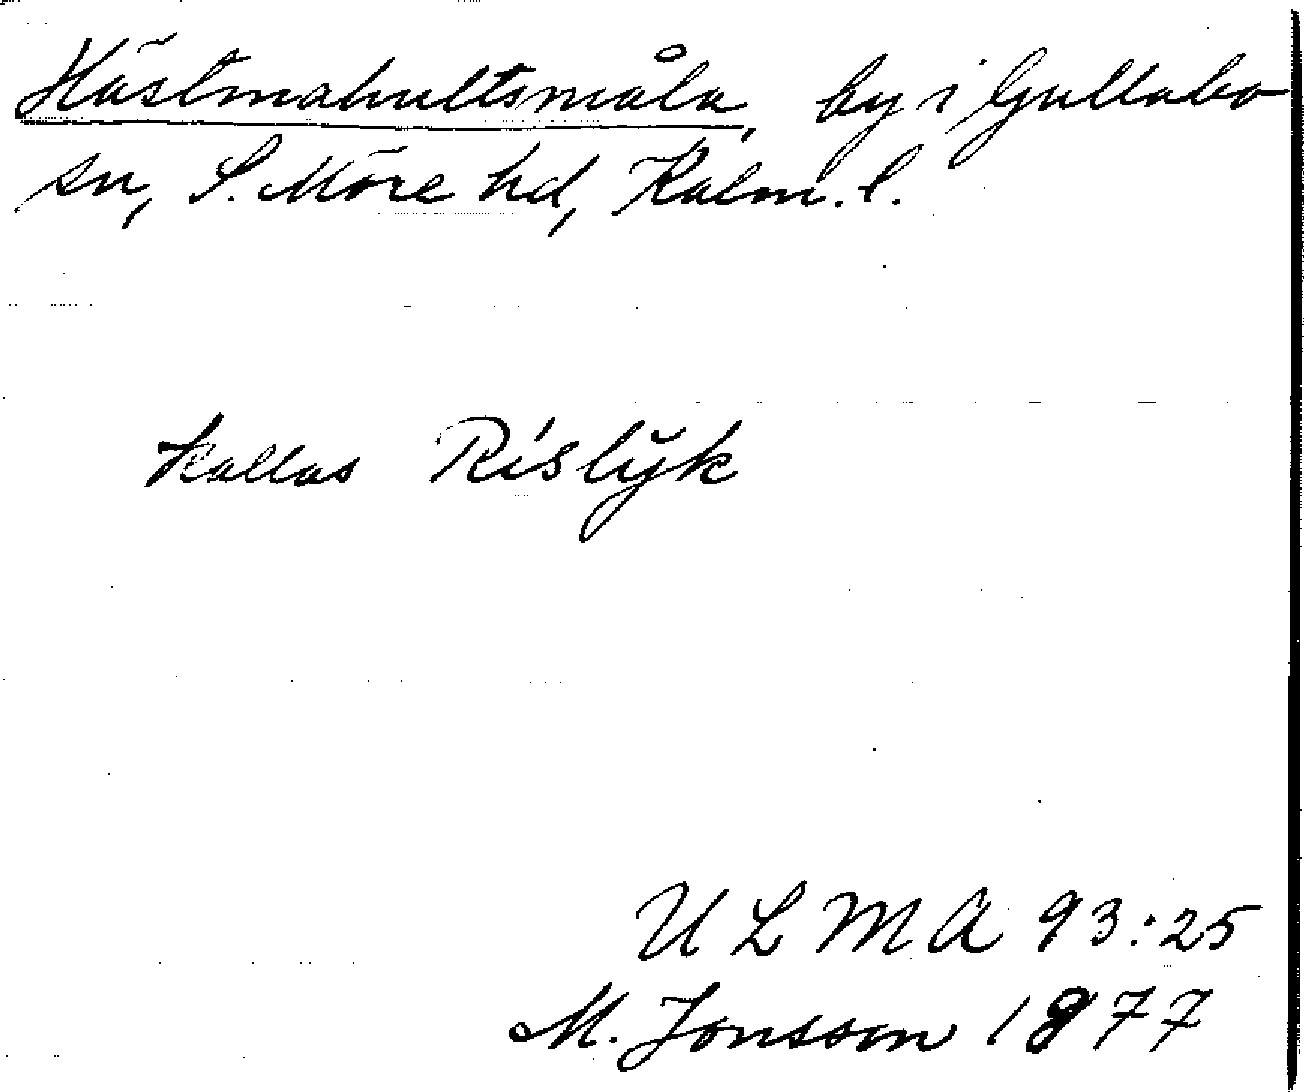 Hästmahultsmåla, by i Gullabo
sn, S. Möre hd, Kalm. l.
kallas Rislyk
ULMA 93:25
M. Jonsson 1877